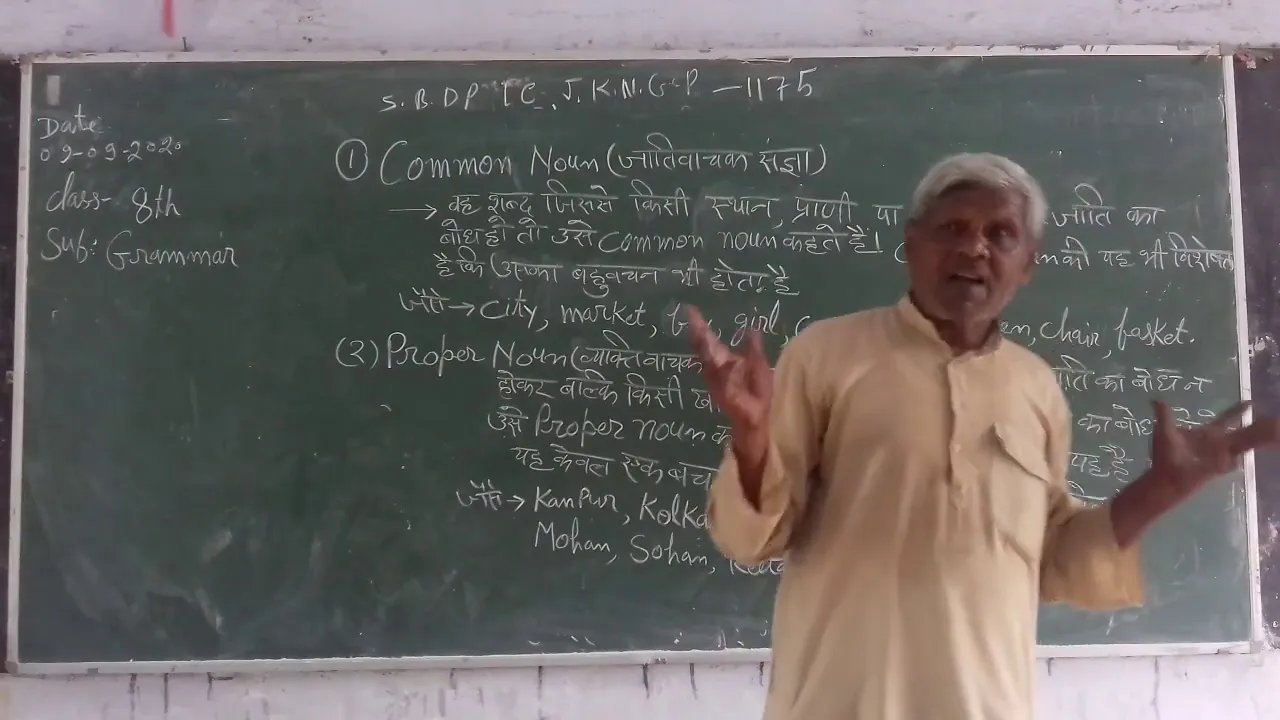 S.B.D.P I.C., J.K.N.G.P - 1175
Date
09-09-2020
class- 8th
Sub: Grammar
① Common Noun (जातिवाचक संज्ञा)
→ वह शब्द जिससे किसी स्थान, प्राणी, या जाति का
बोध हो तो उसे common noun कहते हैं। की यह भी विशेषता
है कि उसका बहुवचन भी होता है
जैसे → City, market, girl, chair, basket.
(२) Proper Noun (व्यक्तिवाचक जाति का बोध न
होकर बल्कि किसी का बोध
उसे Proper noun
यह केवल एक बचन यह है
जैसे → Kanpur,
Mohan, Sohan,